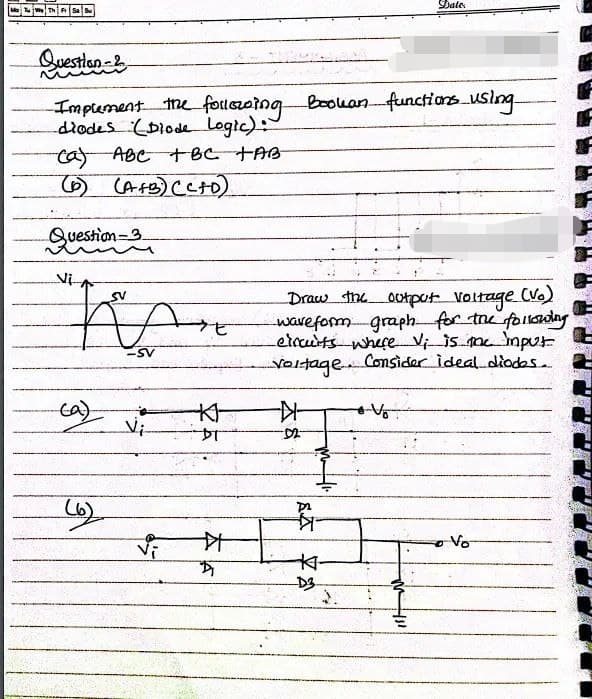 Mo Tu We Th Fr Sa Su
Date:
Question-2
Implement the following Boolean functions using
diodes (Diode Logic):
(a) ABC + BC + AB
(b) (A+B)(C+D)
Question-3
Vi
5V
t
-5V
Draw the output voltage (Vo)
waveform graph for the following
circuits where Vi is the input
voltage. Consider ideal diodes.
(a)
Vi
D1
D2
Vo
(b)
D2
Vi
D1
Vo
D3